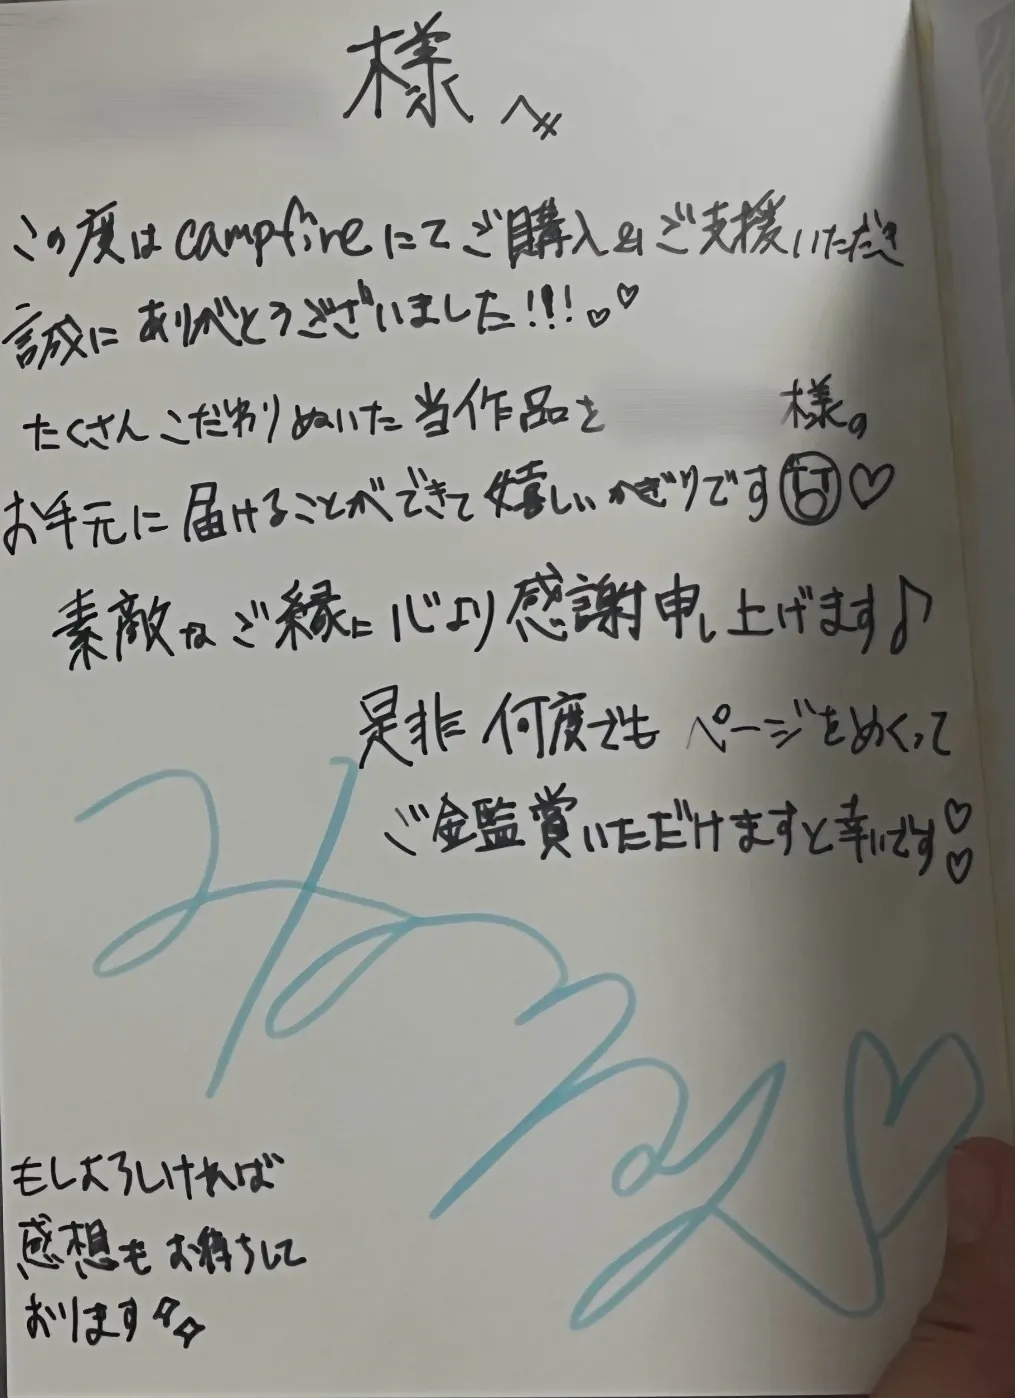 様へ
この度はcampfireにてご購入&ご支援いただき
誠にありがとうございました!!!♡♡
たくさんこだわりぬいた当作品を 様の
お手元に届けることができて嬉しいかぎりです♡
素敵なご縁に心より感謝申し上げます♪
是非何度でもページをめくって
ご金監賞いただけますと幸いです♡♡
もしよろしければ
感想もお待ちして
おります